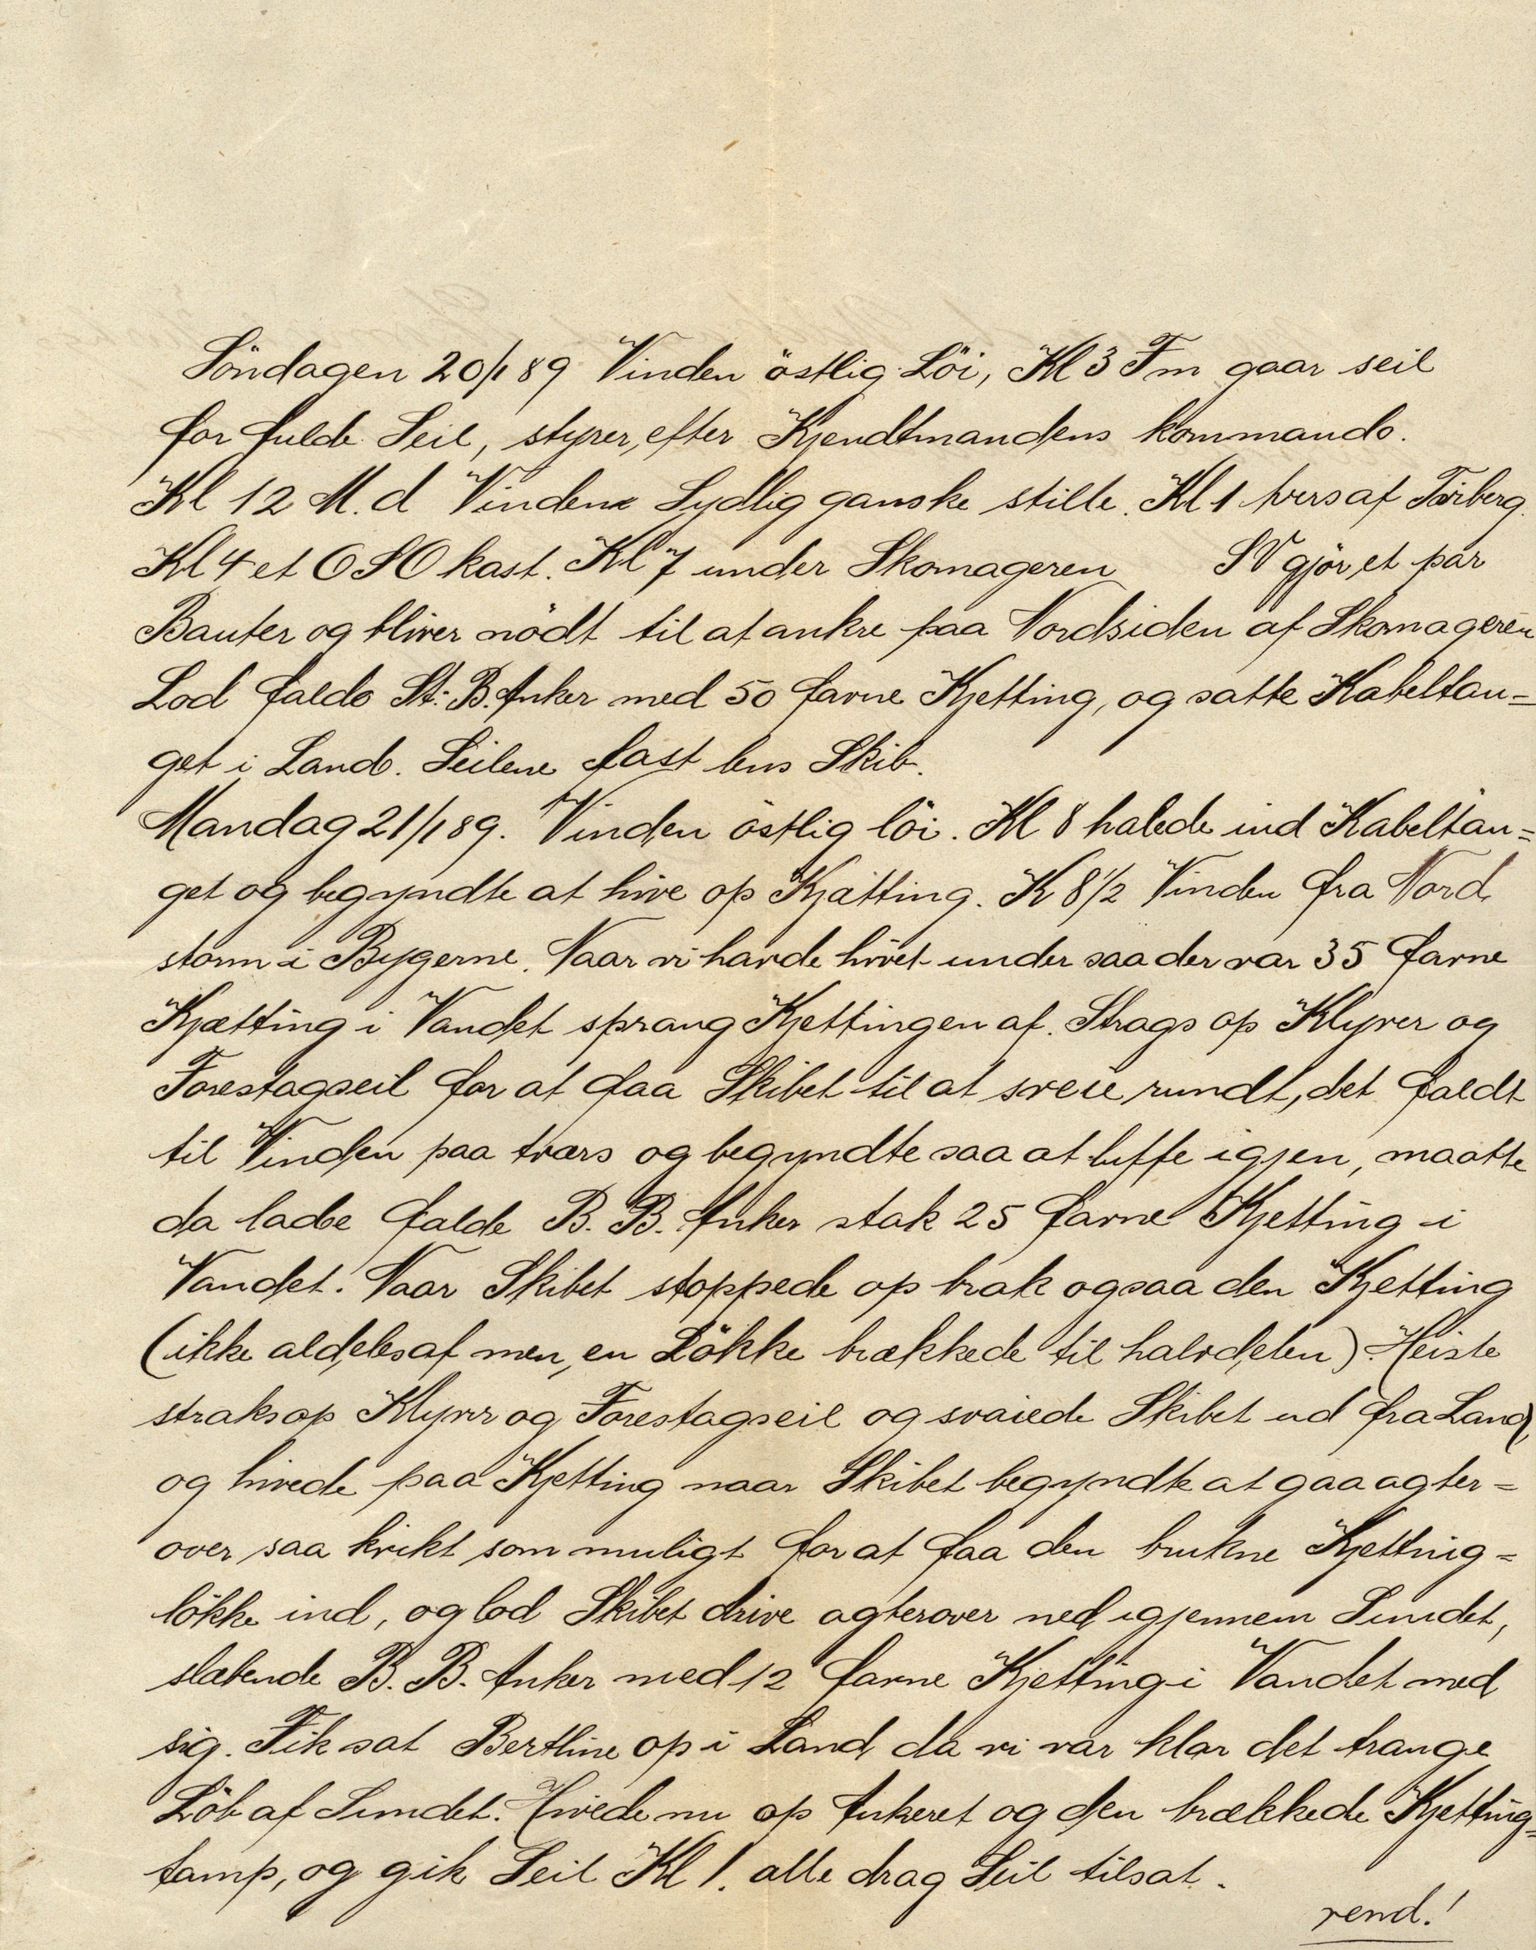 Söndagen 20/1 89 Vinden östlig Löi, Kl 3 Fm gaar seil
for fulde Seil, styrer, efter Kjendtmandens kommando.
Kl 12 M.d Vinden Sydlig ganske stille. Kl 1 tvers af Torberg.
Kl 4 et OSO kast. Kl 7 under Skomageren SV gjör, et par
Bauter og bliver nödt til at ankre paa Nordsiden af Skomageren
Lod falde St: B. Anker med 50 favne Kjetting, og satte Kabeltau=
get i Land. Seilene fast lens Skib.
Mandag 21/1 89. Vinden östlig löi. Kl 8 halede ind Kabeltau=
get og begyndte at hive op Kjætting. K 8 1/2 Vinden fra Nord
storm i Bygerne. Naar vi havde hivet under saa der var 35 favne
Kjætting i Vandet sprang Kjettingen af. Strags op Klyver og
Forestagseil for at faa Skibet til at sveie rundt, det faldt
til Vinden paa tværs og begyndte saa at luffe igjen, maatte
da lade falde B. B. Anker stak 25 favne Kjetting i
Vandet. Naar Skibet stoppede op brak ogsaa den Kjetting
(ikke aldeles af men, en Lökke brækkede til halvdelen). Heiste
straks op Klyver og Forestagseil og svaiede Skibet ud fra Land,
og hivede paa Kjetting naar Skibet begyndte at gaa agter=
over saa kvikt som muligt for at faa den brukne Kjetting=
lökke ind, og lod Skibet drive agterover ned igjennem Sundet,
slæbende B. B. Anker med 12 favne Kjetting i Vandet med
sig. Fik sat Bertline op i Land da vi var klar det trange
Löb af Sundet. Hivede nu op Ankeret og den brækkede Kjetting=
tamp, og gik Seil Kl 1. alle drag Seil tilsat.
vend.!